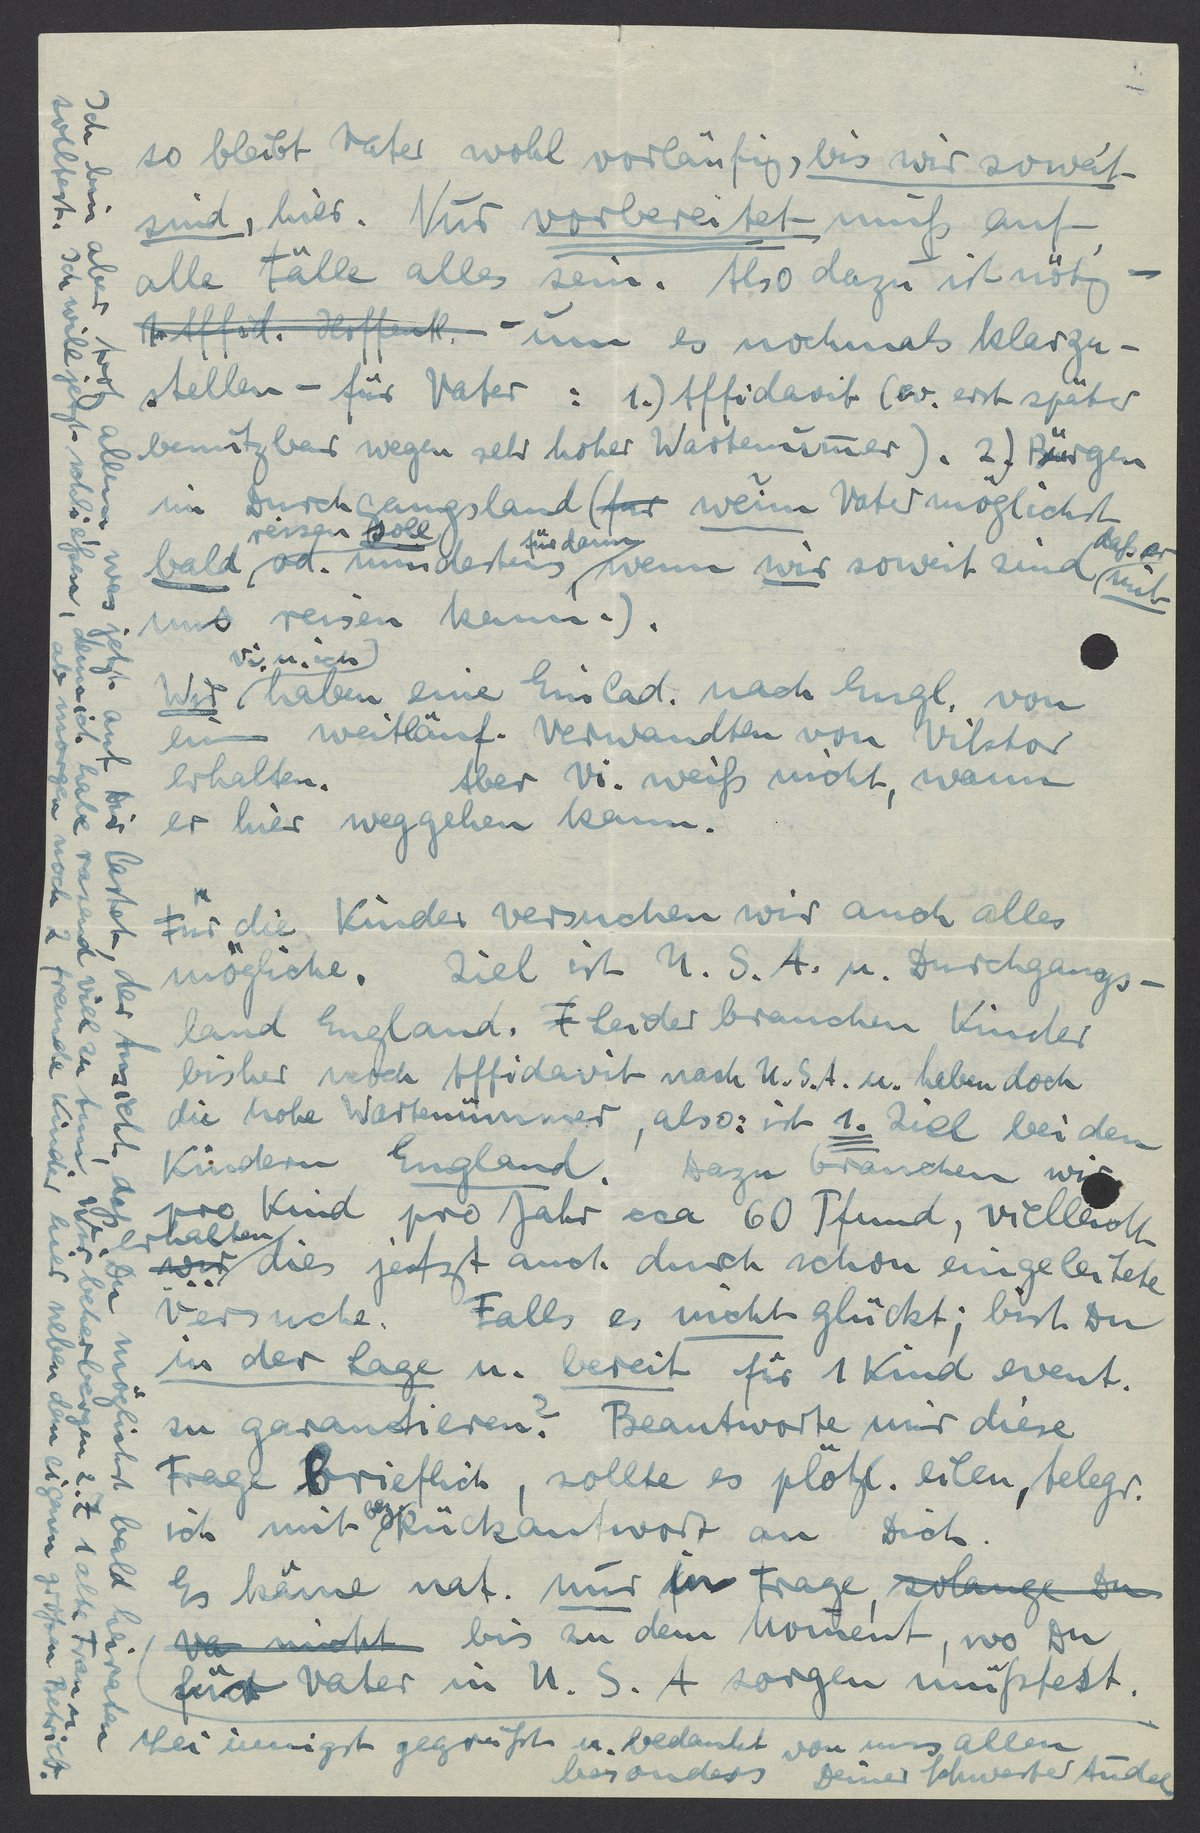 so bleibt Vater wohl vorläufig, bis wir soweit
sind, hier. Nur vorbereitet muß auf
alle Fälle alles sein. Also dazu ist nötig –
1. Affid. – um es nochmals klarzu-
stellen – für Vater : 1.) Affidavit (ev. erst später
benützbar wegen sehr hoher Wartenum̅er). 2.) Bürgen
im Durchgangsland (für wenn Vater möglichst
bald reisen soll od. mindestens für dann, wenn wir soweit sind, daß er mit
uns reisen kann.).
Wir (Vi. u. ich) haben eine Einlad. nach Engl. von
ein weitläuf. Verwandten von Viktor
erhalten. Aber Vi. weiß nicht, wann
er hier weggehen kann.
Für die Kinder versuchen wir auch alles
mögliche. Ziel ist U.S.A. u. Durchgangs-
land England. Leider brauchen Kinder
bisher noch Affidavit nach U.S.A. u. haben doch
die hohe Wartenummer, also: ist 1. Ziel bei den
Kindern England. Dazu brauchen wir
pro Kind pro Jahr cca 60 Pfund, vielleicht
erhalten wir dies jetzt auch durch schon eingeleitete
Versuche. Falls es nicht glückt; bist Du
in der Lage u. bereit für 1 Kind event.
zu garantieren? Beantworte mir diese
Frage brieflich, sollte es plötzl. eilen, telegr.
ich mit bez. Rückantwort an Dich.
Es käme nat. nur in Frage, solange Du
Va nicht bis zu dem Moment, wo Du
für Vater in U.S.A sorgen müßtest.
Sei innigst gegrüßt u. bedankt von uns allen
besonders Deiner Schwester Audel
Ich bin aber trotz allem was jetzt auf Dir lastet, der Ansicht, daß Du möglichst bald heiraten
solltest. Ich will jetzt schließen, denn ich habe rasend viel zu tun, wir beherbergen z.Z 1 alte Frau u.
ab morgen noch 2 fremde Kinder hier neben dem eigenen großen Betrieb.